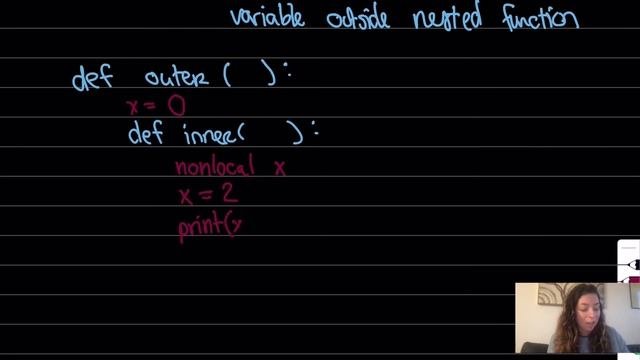 variable outside nested function
def outer( ):
x = 0
def inner( ):
nonlocal x
x = 2
print(x